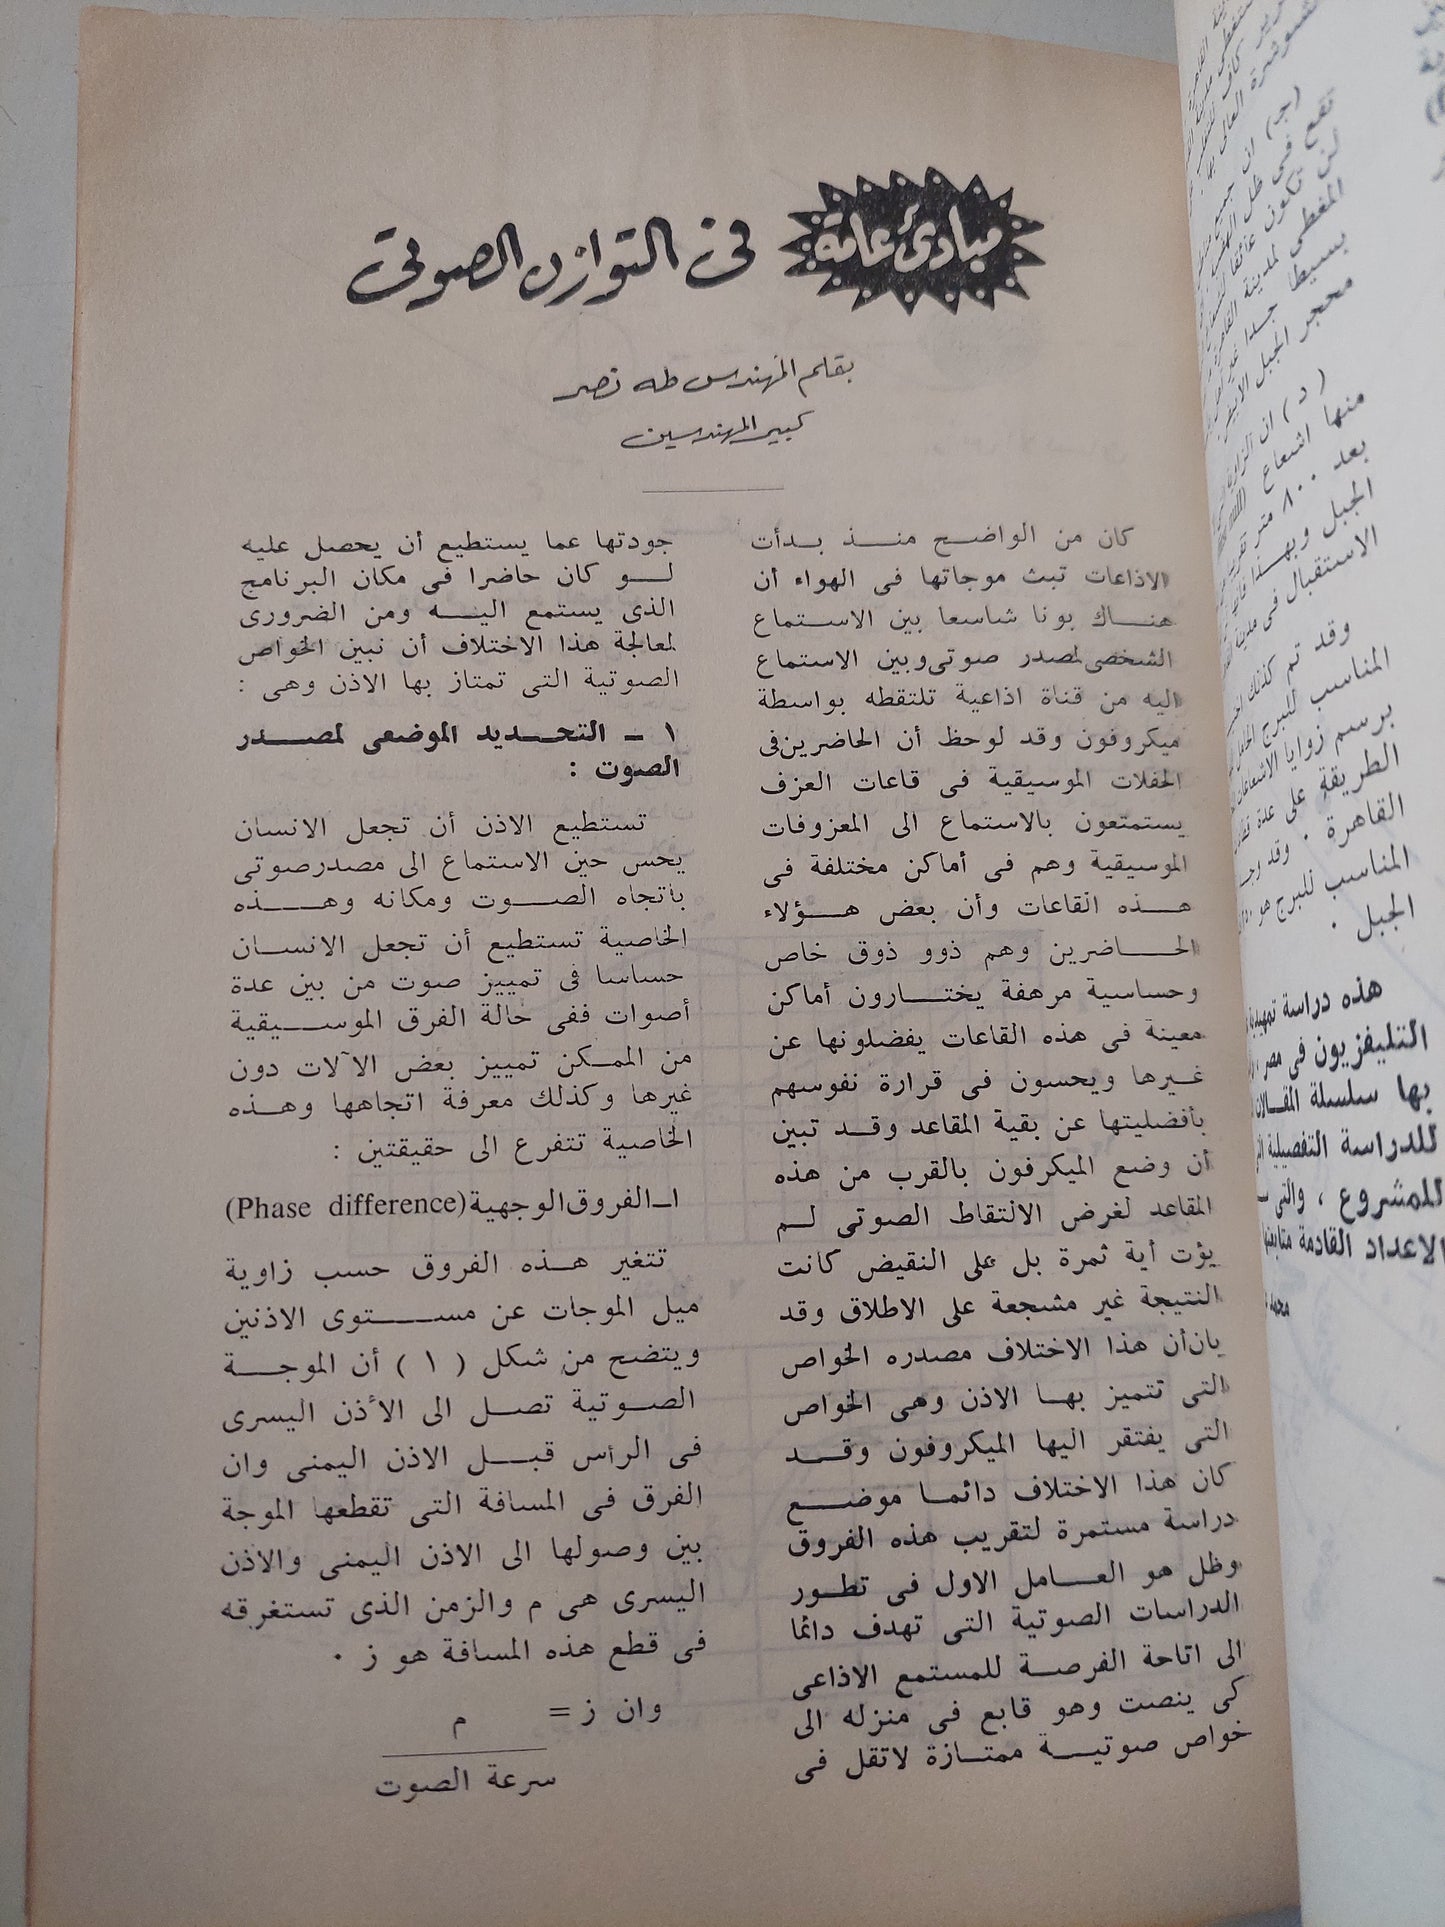 مبادئ عامة فى التوازن الصوتى
بقلم المهندس طه نصر
كبير المهندسين
كان من الواضح منذ بدأت
الاذاعات تبث موجاتها فى الهواء أن
هناك بونا شاسعا بين الاستماع
الشخصى لمصدر صوتى وبين الاستماع
اليه من قناة اذاعية تلتقطه بواسطة
ميكروفون وقد لوحظ أن الحاضرين فى
الحفلات الموسيقية فى قاعات العزف
يستمتعون بالاستماع الى المعزوفات
الموسيقية وهم فى أماكن مختلفة فى
هذه القاعات وأن بعض هؤلاء
الحاضرين وهم ذوو ذوق خاص
وحساسية مرهفة يختارون أماكن
معينة فى هذه القاعات يفضلونها عن
غيرها ويحسون فى قرارة نفوسهم
بأفضليتها عن بقية المقاعد وقد تبين
أن وضع الميكرفون بالقرب من هذه
المقاعد لغرض الالتقاط الصوتى لم
يؤت أية ثمرة بل على النقيض كانت
النتيجة غير مشجعة على الاطلاق وقد
بان أن هذا الاختلاف مصدره الخواص
التى تتميز بها الاذن وهى الخواص
التى يفتقر اليها الميكروفون وقد
كان هذا الاختلاف دائما موضع
دراسة مستمرة لتقريب هذه الفروق
وظل هو العامل الاول فى تطور
الدراسات الصوتية التى تهدف دائما
الى اتاحة الفرصة للمستمع الاذاعى
كى ينصت وهو قابع فى منزله الى
خواص صوتية ممتازة لاتقل فى
جودتها عما يستطيع أن يحصل عليه
لو كان حاضرا فى مكان البرنامج
الذى يستمع اليه ومن الضرورى
لمعالجة هذا الاختلاف أن نبين الخواص
الصوتية التى تمتاز بها الاذن وهى :
١ – التحديد الموضعى لمصدر
الصوت :
تستطيع الاذن أن تجعل الانسان
يحس حين الاستماع الى مصدر صوتى
باتجاه الصوت ومكانه وهذه
الخاصية تستطيع أن تجعل الانسان
حساسا فى تمييز صوت من بين عدة
أصوات ففى حالة الفرق الموسيقية
من الممكن تمييز بعض الآلات دون
غيرها وكذلك معرفة اتجاهها وهذه
الخاصية تتفرع الى حقيقتين :
ا – الفروق الوجهية (Phase difference)
تتغير هذه الفروق حسب زاوية
ميل الموجات عن مستوى الاذنين
ويتضح من شكل ( ١ ) أن الموجة
الصوتية تصل الى الأذن اليسرى
فى الرأس قبل الاذن اليمنى وان
الفرق فى المسافة التى تقطعها الموجة
بين وصولها الى الاذن اليمنى والاذن
اليسرى هى م والزمن الذى تستغرقه
فى قطع هذه المسافة هو ز ٠
وان ز = م
سرعة الصوت
تقع فى ظل
لن تكون عائقا
المغطى لمدينة القاهرة
بسيطا جدا غير
محجر الجبل
( د ) ان
منها اشعاع
بعد ٨٠٠ متر
الجبل وبهذا
الاستقبال فى مدينة
وقد تم كذلك
المناسب للبرج
برسم زوايا
الطريقة على عدة
القاهرة ٠ وقد
المناسب للبرج هو
الجبل ٠
هذه دراسة تمهيدية
التليفزيون فى مصر
بها سلسلة المقالات
للدراسة التفصيلية
للمشروع ، والتى
الاعداد القادمة متابعتها
محمد